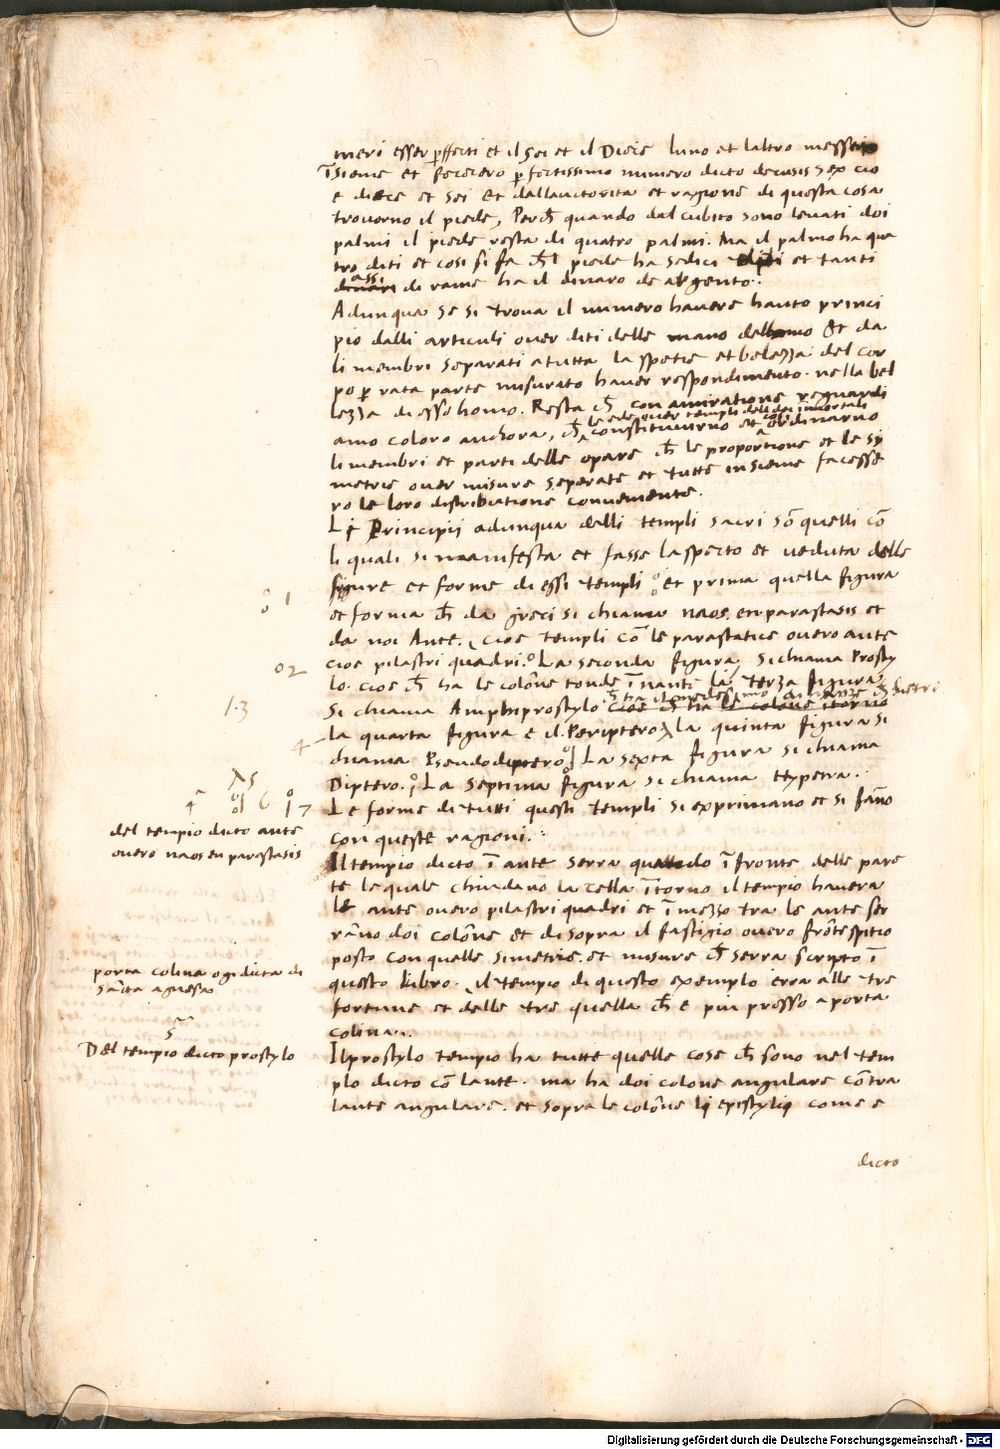 meri esser ꝑffecti et il Sei et il Diece luno et laltro messeno
īsieme et fecerero ꝑfectissimo numero dicto decusis sex cio
e diece et sei et dallauctorita et ragione di questa cosa
trovorno il piede, Perch quando dal cubito sono levati doi
palmi il piede resta di quatro palmi. Ma il palmo ha qua
tro diti et cosi si fa chl piede ha sedici diti et tanti
assi
dinari di rame ha il dinaro de argento.
Adunqua se si trova il numero havere hauto princi
pio dalli articuli over diti delle mano dellomo et da
li membri separati a tutta la spetie et belezza del cor
po ꝑ rata parte misurato haver respondimento. nella bel
lezza di esso homo. Resta ch con amiratione reguardi
le ede over templi delli dei immortali
amo coloro anchora, ch constituirno et cosi ordinarno
li membri et parti delle opere ch le proportione et le sy
metrie over misure seperate et tutte insieme facesse
ro le loro distributione conveniente.
Li Principii adunqua delli templi sacri sō quelli cō
li quali si manifesta et fasse laspecto et veduta delle
figure et forme di essi templi et prima quella figura
et forma ch da greci si chiama naos. en parastasis et
da noi Ante. cioe templi cō le parastatice overo ante
cioe pilastri quadri. La seconda figura, si chiama Prosty
lo. cioe ch ha le colōne tonde īnante la terza figura
ch ha il medesimo dinanze ch dietro
Si chiama Amphiprostylo cioe ch ha le colone itorno
la quarta figura e il Periptero la quinta figura si
chiama Pseudodiptero La sexta figura si chiama
Diptero. La Septima figura si chiama Hypetra.
Le forme di tutti questi templi si exprimano et si fāno
con queste ragioni.
Il tempio dicto ī ante serra quando ī fronte delle pare
te le quale chiudano la cella ītorno il tempio havera
le ante overo pilastri quadri et ī mezzo tra le ante ser
rāno doi colōne et di sopra il fastigio overo frōtespitio
posto con quelle simetrie. et misure ch serra scripto ī
questo libro. il tempio di questo exemplo erra alle tre
fortune et delle tre quella ch e piu presso a porta
colina.
Il prostylo tempio ha tutte quelle cose ch sono nel tem
plo dicto cō lante. ma ha doi colone angulare cōtra
lante angulare. et sopra le colōne li epistylii come e
dicto
1
2
1.3
4
5
4 6 7
del tempio dicto ante
overo naos en parastasis
porta colina ogi dicta di
Sancta agnesa
5
Del tempio dicto prostylo
Digitalisierung gefördert durch die Deutsche Forschungsgemeinschaft - DFG